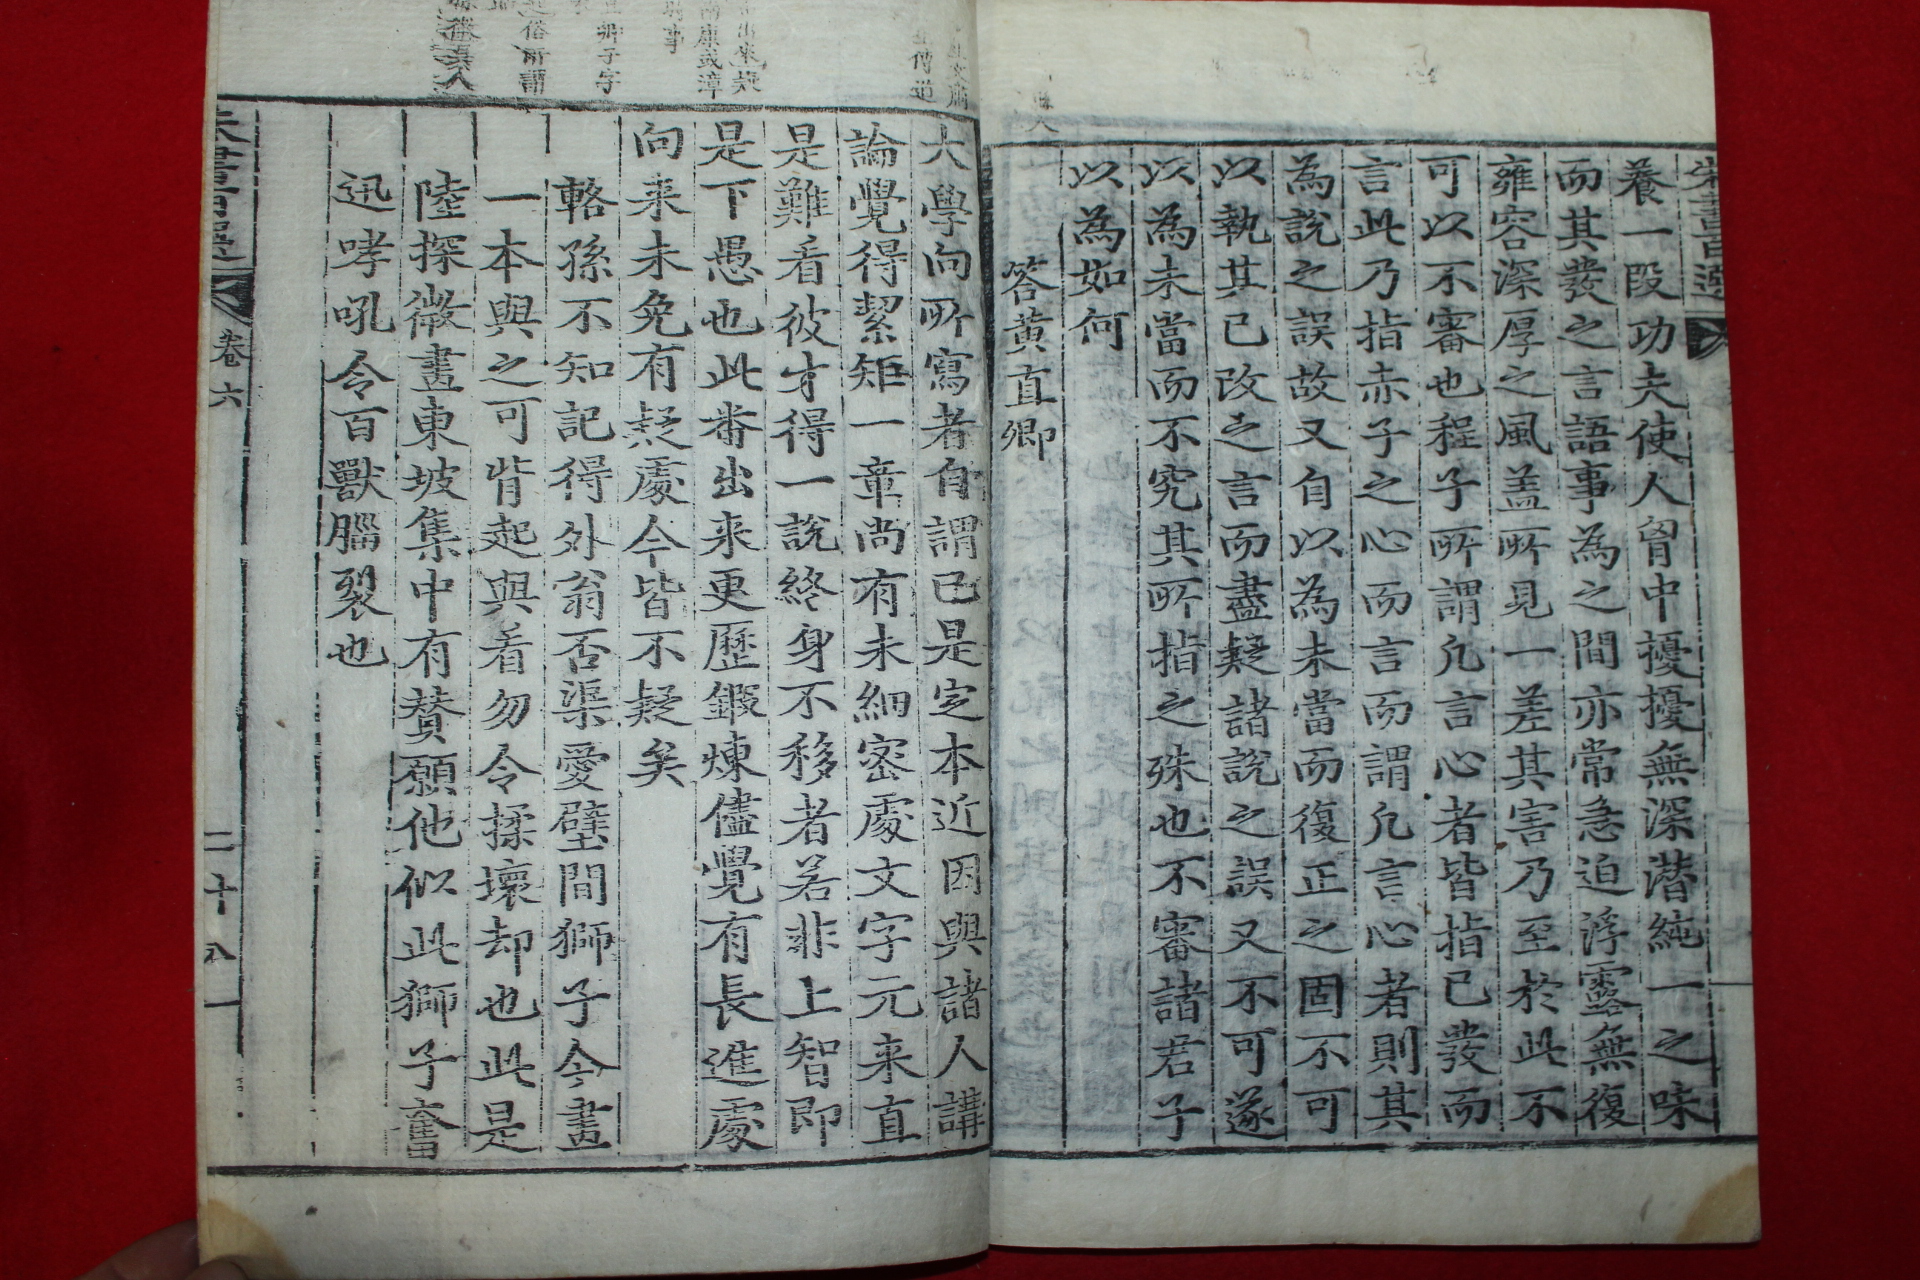 朱書百選
養一段功夫使人胷中擾擾無深潛純一之味
而其發之言語事為之間亦常急迫浮露無復
雍容深厚之風盖所見一差其害乃至於此不
可以不審也程子所謂凡言心者皆指已發而
言此乃指赤子之心而言而謂凡言心者則其
為說之誤故又自以為未當而復正之固不可
以執其已改之言而盡疑諸說之誤又不可遂
以為未當而不究其所指之殊也不審諸君子
以為如何
答黃直卿
大學向所寫者自謂已是定本近因與諸人講
論覺得絜矩一章尚有未細密處文字元来直
是難看彼才得一說終身不移者若非上智即
是下愚也此番出来更歷鍛煉儘覺有長進處
向来未免有疑處今皆不疑矣
輅孫不知記得外翁否渠愛壁間獅子今畫
一本與之可背起與看勿令揉壞却也此是
陸探微畫東坡集中有賛願他似此獅子奮
迅哮吼令百獸腦裂也
朱書百選
卷六
二十八